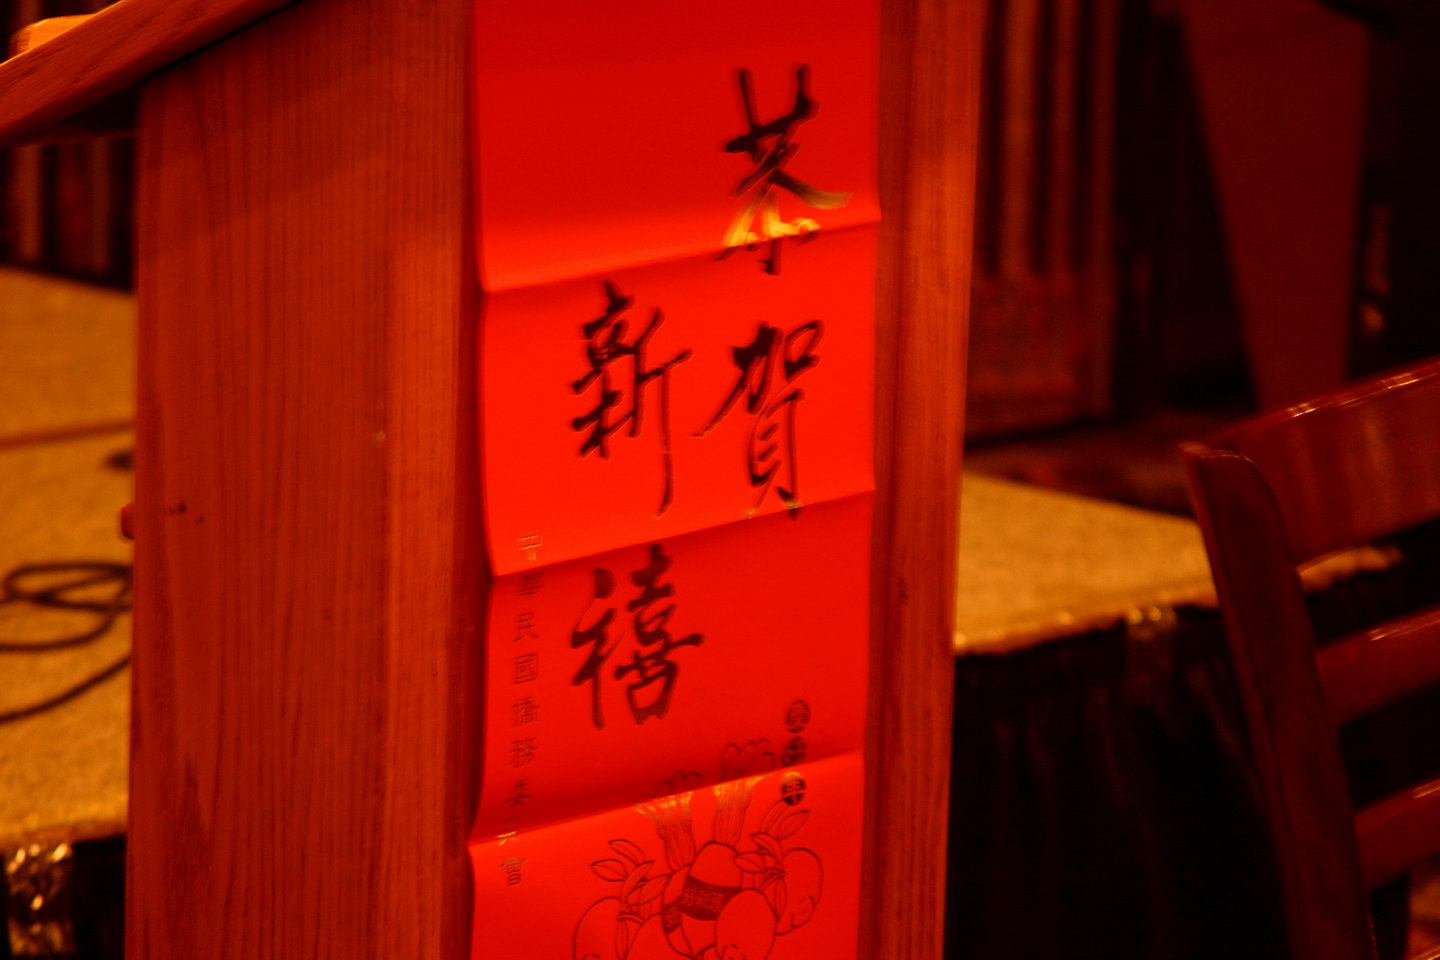 恭賀
新禧
中華民國僑務委員會